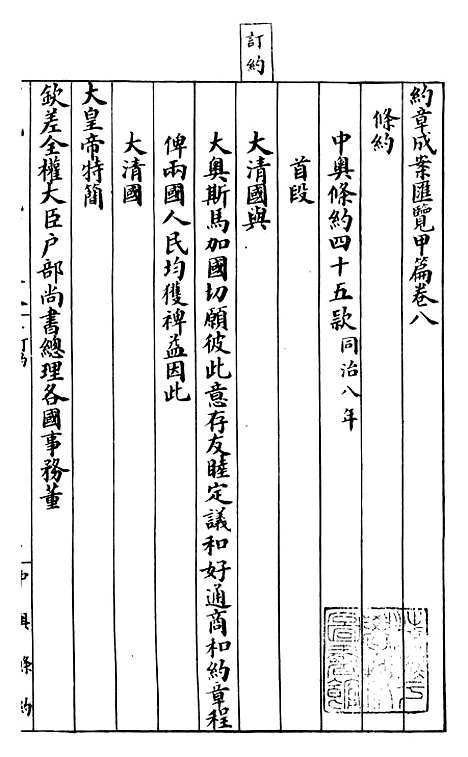 訂約
約章成案匯覽甲篇卷八
條約
中奧條約四十五款同治八年
首段
大清國與
大奧斯馬加國切願彼此意存友睦定議和好通商和約章程
俾兩國人民均獲裨益因此
大清國
大皇帝特簡
欽差全權大臣户部尚書總理各國事務董
中奧條約